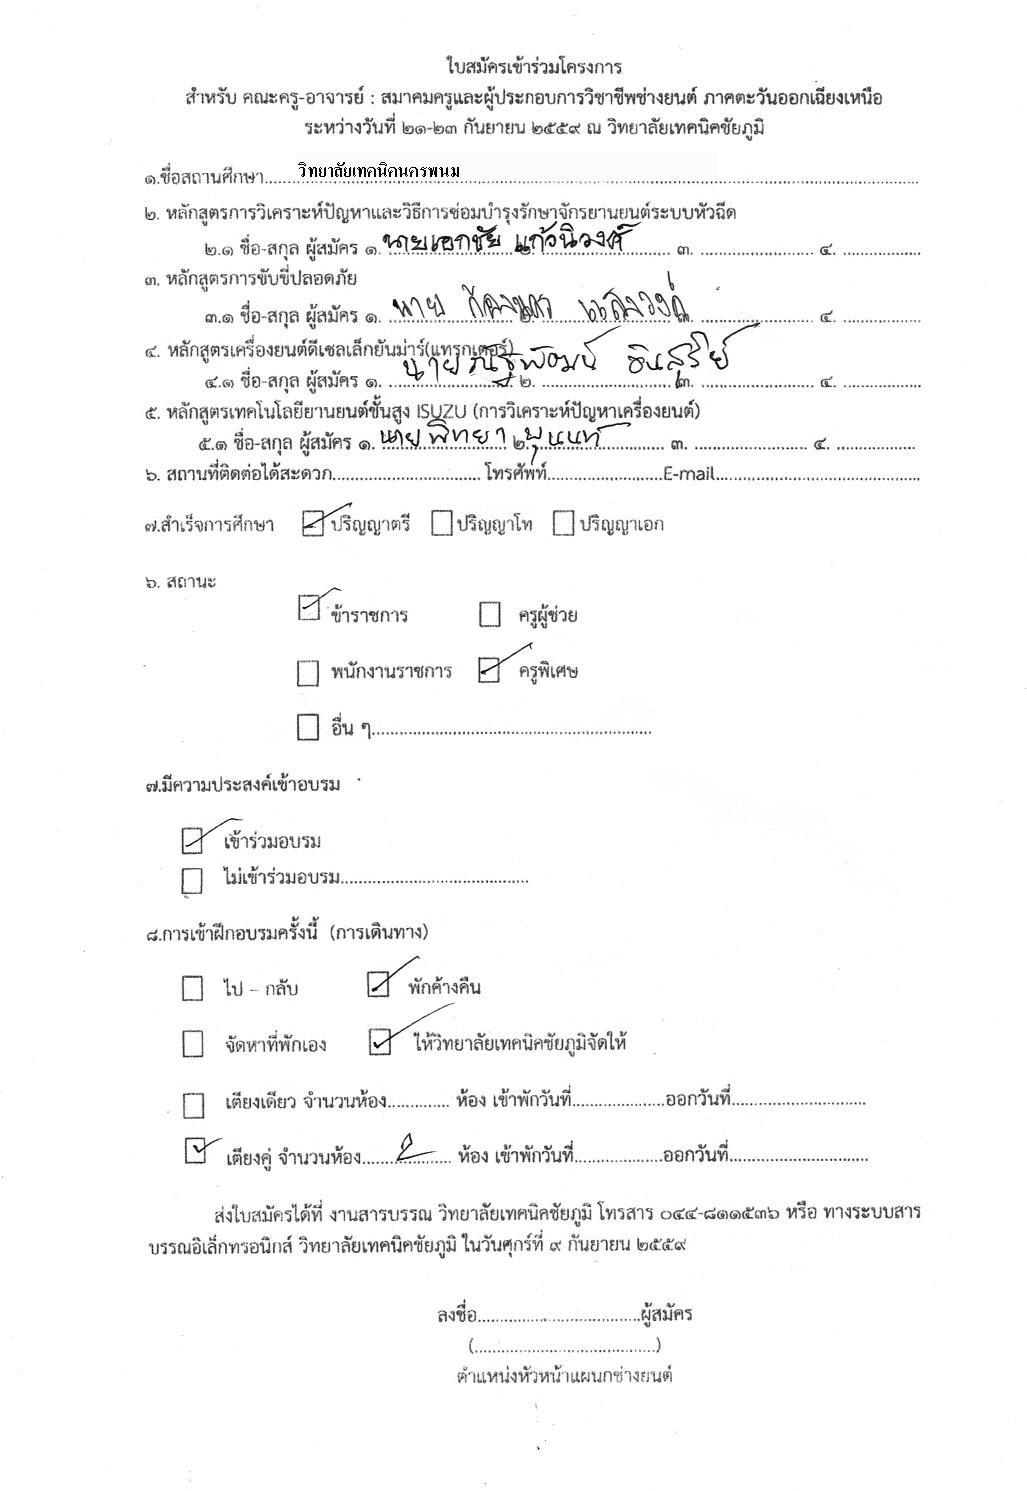 ใบสมัครเข้าร่วมโครงการ
สำหรับ คณะครู-อาจารย์ : สมาคมครูและผู้ประกอบการวิชาชีพช่างยนต์ ภาคตะวันออกเฉียงเหนือ
ระหว่างวันที่ ๒๑-๒๓ กันยายน ๒๕๕๙ ณ วิทยาลัยเทคนิคชัยภูมิ
๑.ชื่อสถานศึกษา.....วิทยาลัยเทคนิคนครพนม.....
๒. หลักสูตรการวิเคราะห์ปัญหาและวิธีการซ่อมบำรุงรักษาจักรยานยนต์ระบบหัวฉีด
๒.๑ ชื่อ-สกุล ผู้สมัคร ๑. นายเอกชัย แก้วนิวงศ์ ๓. .................... ๔. ..................
๓. หลักสูตรการขับขี่ปลอดภัย
๓.๑ ชื่อ-สกุล ผู้สมัคร ๑. นาย ๒. แสงวงค์ ๓. .................... ๔. ..................
๔. หลักสูตรเครื่องยนต์ดีเซลเล็กยันม่าร์(แทรกเตอร์)
๔.๑ ชื่อ-สกุล ผู้สมัคร ๑. นายณัฐพัฒน์ ๒. อินสุรีย์ ๓. .................... ๔. ..................
๕. หลักสูตรเทคโนโลยียานยนต์ชั้นสูง ISUZU (การวิเคราะห์ปัญหาเครื่องยนต์)
๕.๑ ชื่อ-สกุล ผู้สมัคร ๑. นายพิทยา ๒. พุนนท์ ๓. .................... ๔. ..................
๖. สถานที่ติดต่อได้สะดวก.................................โทรศัพท์..........................E-mail.............................................
๗.สำเร็จการศึกษา ปริญญาตรี ปริญญาโท ปริญญาเอก
๖. สถานะ
ข้าราชการ ครูผู้ช่วย
พนักงานราชการ ครูพิเศษ
อื่น ๆ..............................................................
๗.มีความประสงค์เข้าอบรม
เข้าร่วมอบรม
ไม่เข้าร่วมอบรม.........................................
๘.การเข้าฝึกอบรมครั้งนี้ (การเดินทาง)
ไป – กลับ พักค้างคืน
จัดหาที่พักเอง ให้วิทยาลัยเทคนิคชัยภูมิจัดให้
เตียงเดียว จำนวนห้อง.............. ห้อง เข้าพักวันที่....................ออกวันที่..............................
เตียงคู่ จำนวนห้อง.......๒....... ห้อง เข้าพักวันที่....................ออกวันที่...............................
ส่งใบสมัครได้ที่ งานสารบรรณ วิทยาลัยเทคนิคชัยภูมิ โทรสาร ๐๔๔-๘๑๑๕๓๖ หรือ ทางระบบสาร
บรรณอิเล็กทรอนิกส์ วิทยาลัยเทคนิคชัยภูมิ ในวันศุกร์ที่ ๙ กันยายน ๒๕๕๙
ลงชื่อ....................................ผู้สมัคร
(........................................)
ตำแหน่งหัวหน้าแผนกช่างยนต์